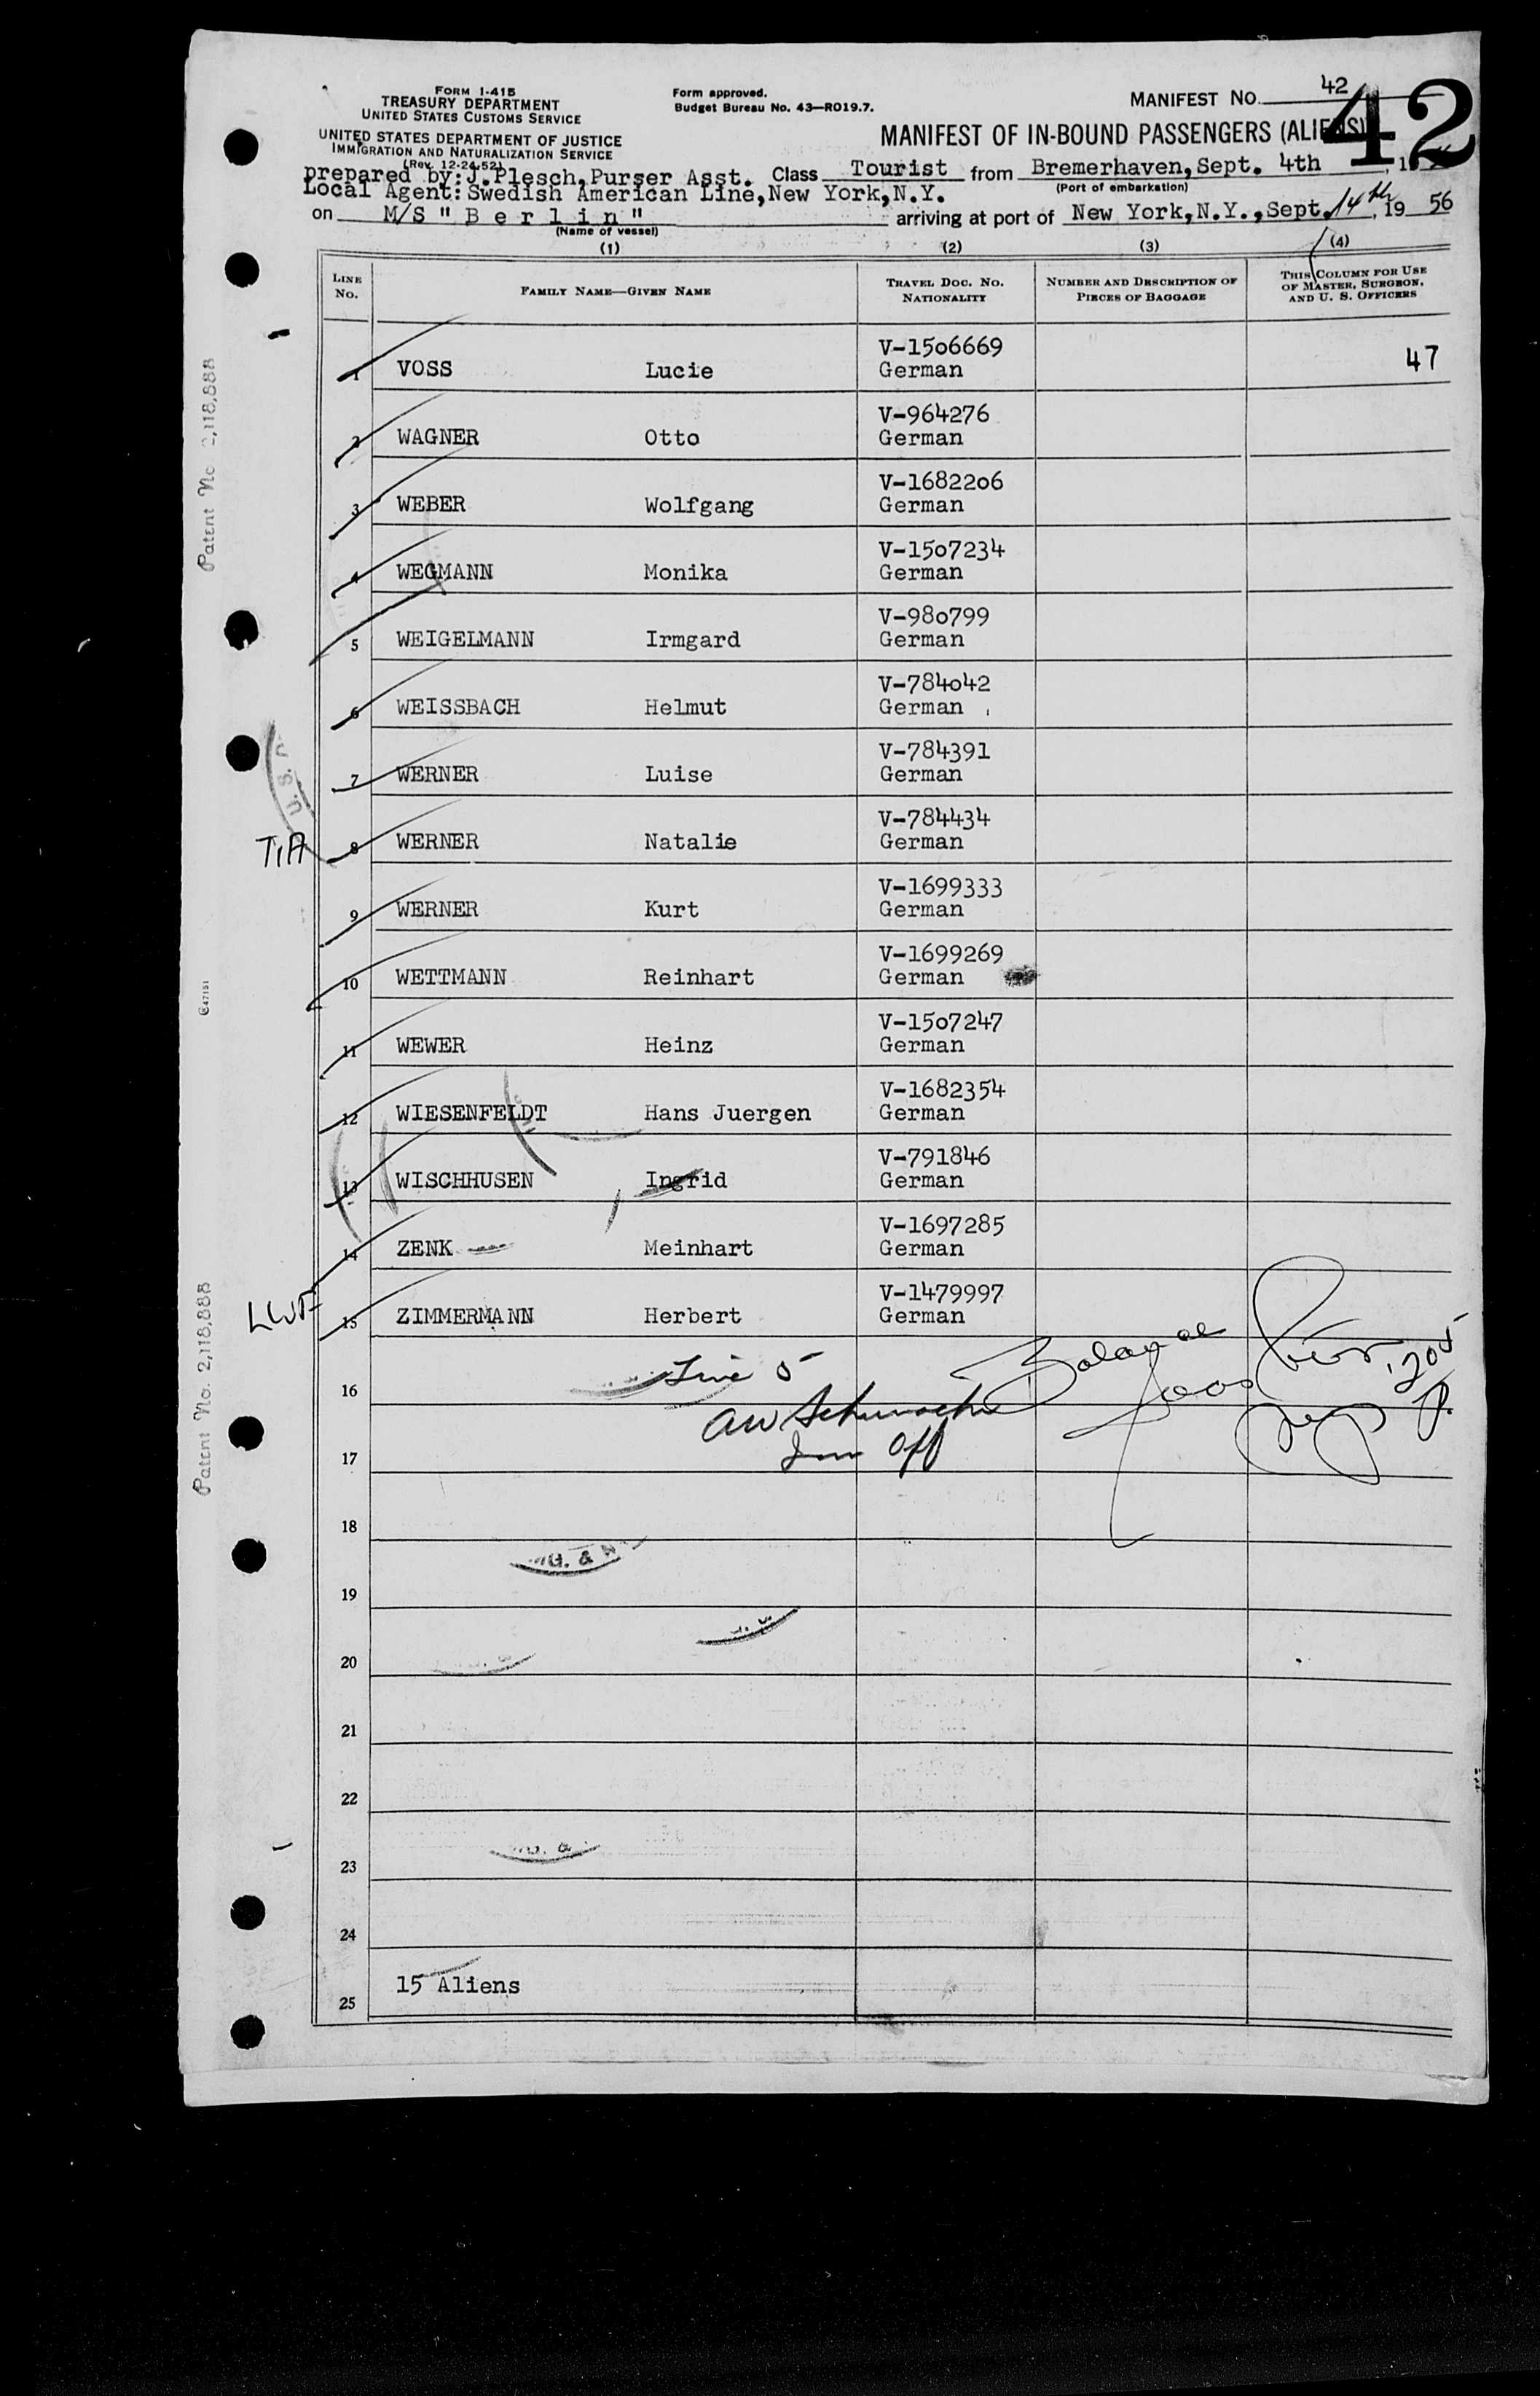 FORM I-415
TREASURY DEPARTMENT
UNITED STATES CUSTOMS SERVICE
UNITED STATES DEPARTMENT OF JUSTICE
IMMIGRATION AND NATURALIZATION SERVICE
(Rev. 12-24-52)
Form approved.
Budget Bureau No. 43—RO19.7.
MANIFEST NO. 42
42
MANIFEST OF IN-BOUND PASSENGERS (ALIENS)
prepared by: J. Plesch, Purser Asst. Class Tourist from Bremerhaven, Sept. 4th, 1
(Port of embarkation)
Local Agent: Swedish American Line, New York, N.Y.
on M/S " B e r l i n " arriving at port of New York, N.Y., Sept. 14th, 19 56
(Name of vessel)
(1) (2) (3) (4)
LINE NO.
FAMILY NAME—GIVEN NAME
TRAVEL DOC. NO. NATIONALITY
NUMBER AND DESCRIPTION OF PIECES OF BAGGAGE
THIS COLUMN FOR USE OF MASTER, SURGEON, AND U. S. OFFICERS
V-1506669
1 VOSS Lucie German 47
V-964276
2 WAGNER Otto German
V-1682206
3 WEBER Wolfgang German
V-1507234
4 WEGMANN Monika German
V-980799
5 WEIGELMANN Irmgard German
V-784042
6 WEISSBACH Helmut German
V-784391
7 WERNER Luise German
V-784434
T,A 8 WERNER Natalie German
V-1699333
9 WERNER Kurt German
V-1699269
10 WETTMANN Reinhart German
V-1507247
11 WEWER Heinz German
V-1682354
12 WIESENFELDT Hans Juergen German
V-791846
13 WISCHHUSEN Ingrid German
V-1697285
14 ZENK Meinhart German
V-1479997
LWF 15 ZIMMERMANN Herbert German
16 Line 5 Balance
17 Imm Off
18
19
20
21
22
23
24
15 Aliens
25
Patent No. 2,118,888
Patent No. 2,118,888
U. S.